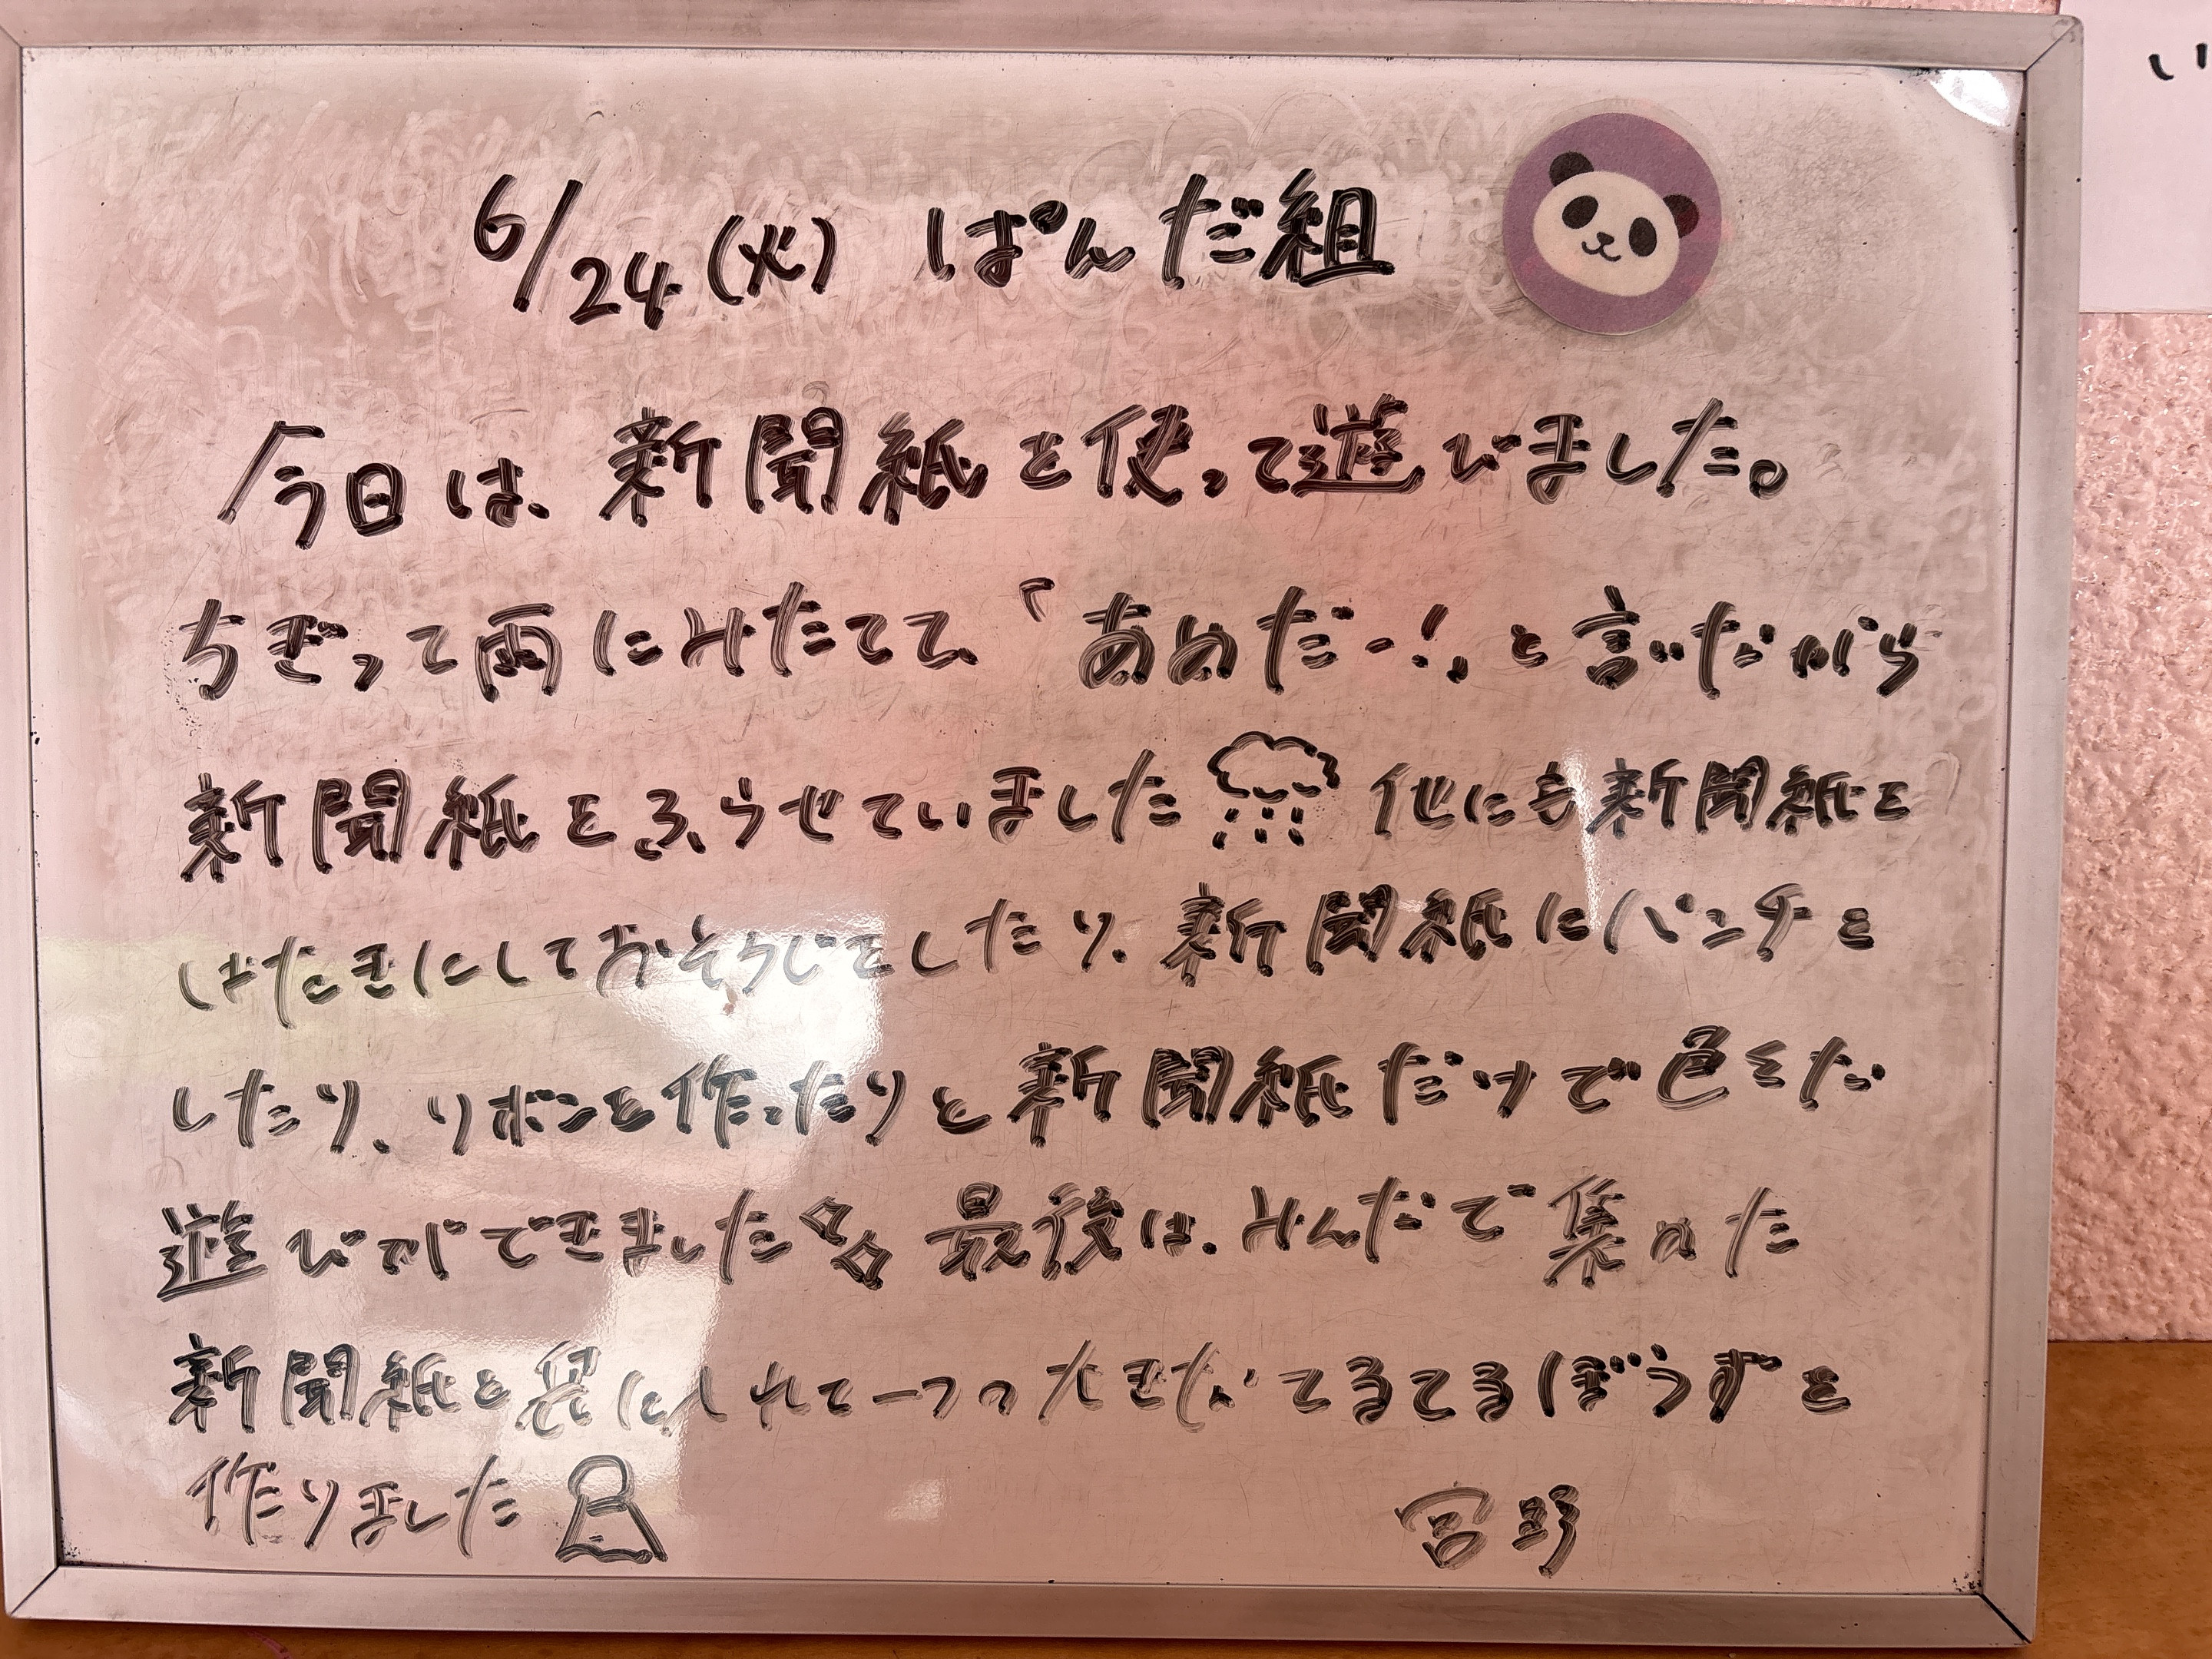 6/24(火) ぱんだ組
今日は、新聞紙を使って遊びました。
ちぎって雨にみたてて、「あめだー!」と言いながら
新聞紙をふらせていました 他にも新聞紙を
はたきにしておそうじをしたり、新聞紙にパンチを
したり、リボンを作ったりと新聞紙だけで色んな
遊びができました 最後は、みんなで集めた
新聞紙を袋にいれて一つの大きなてるてるぼうずを
作りました
宮野
い